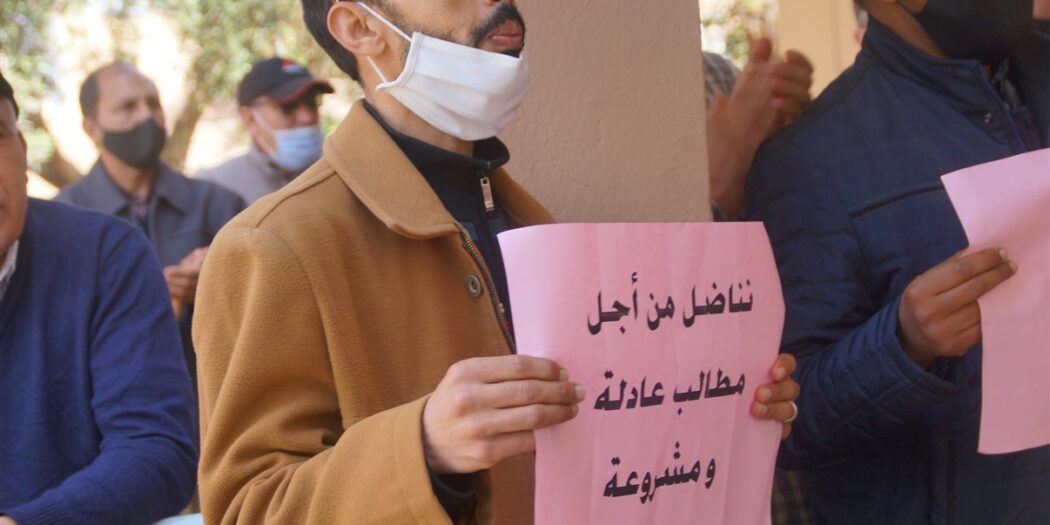 نناضل من أجل
مطالب عادلة
ومشروعة